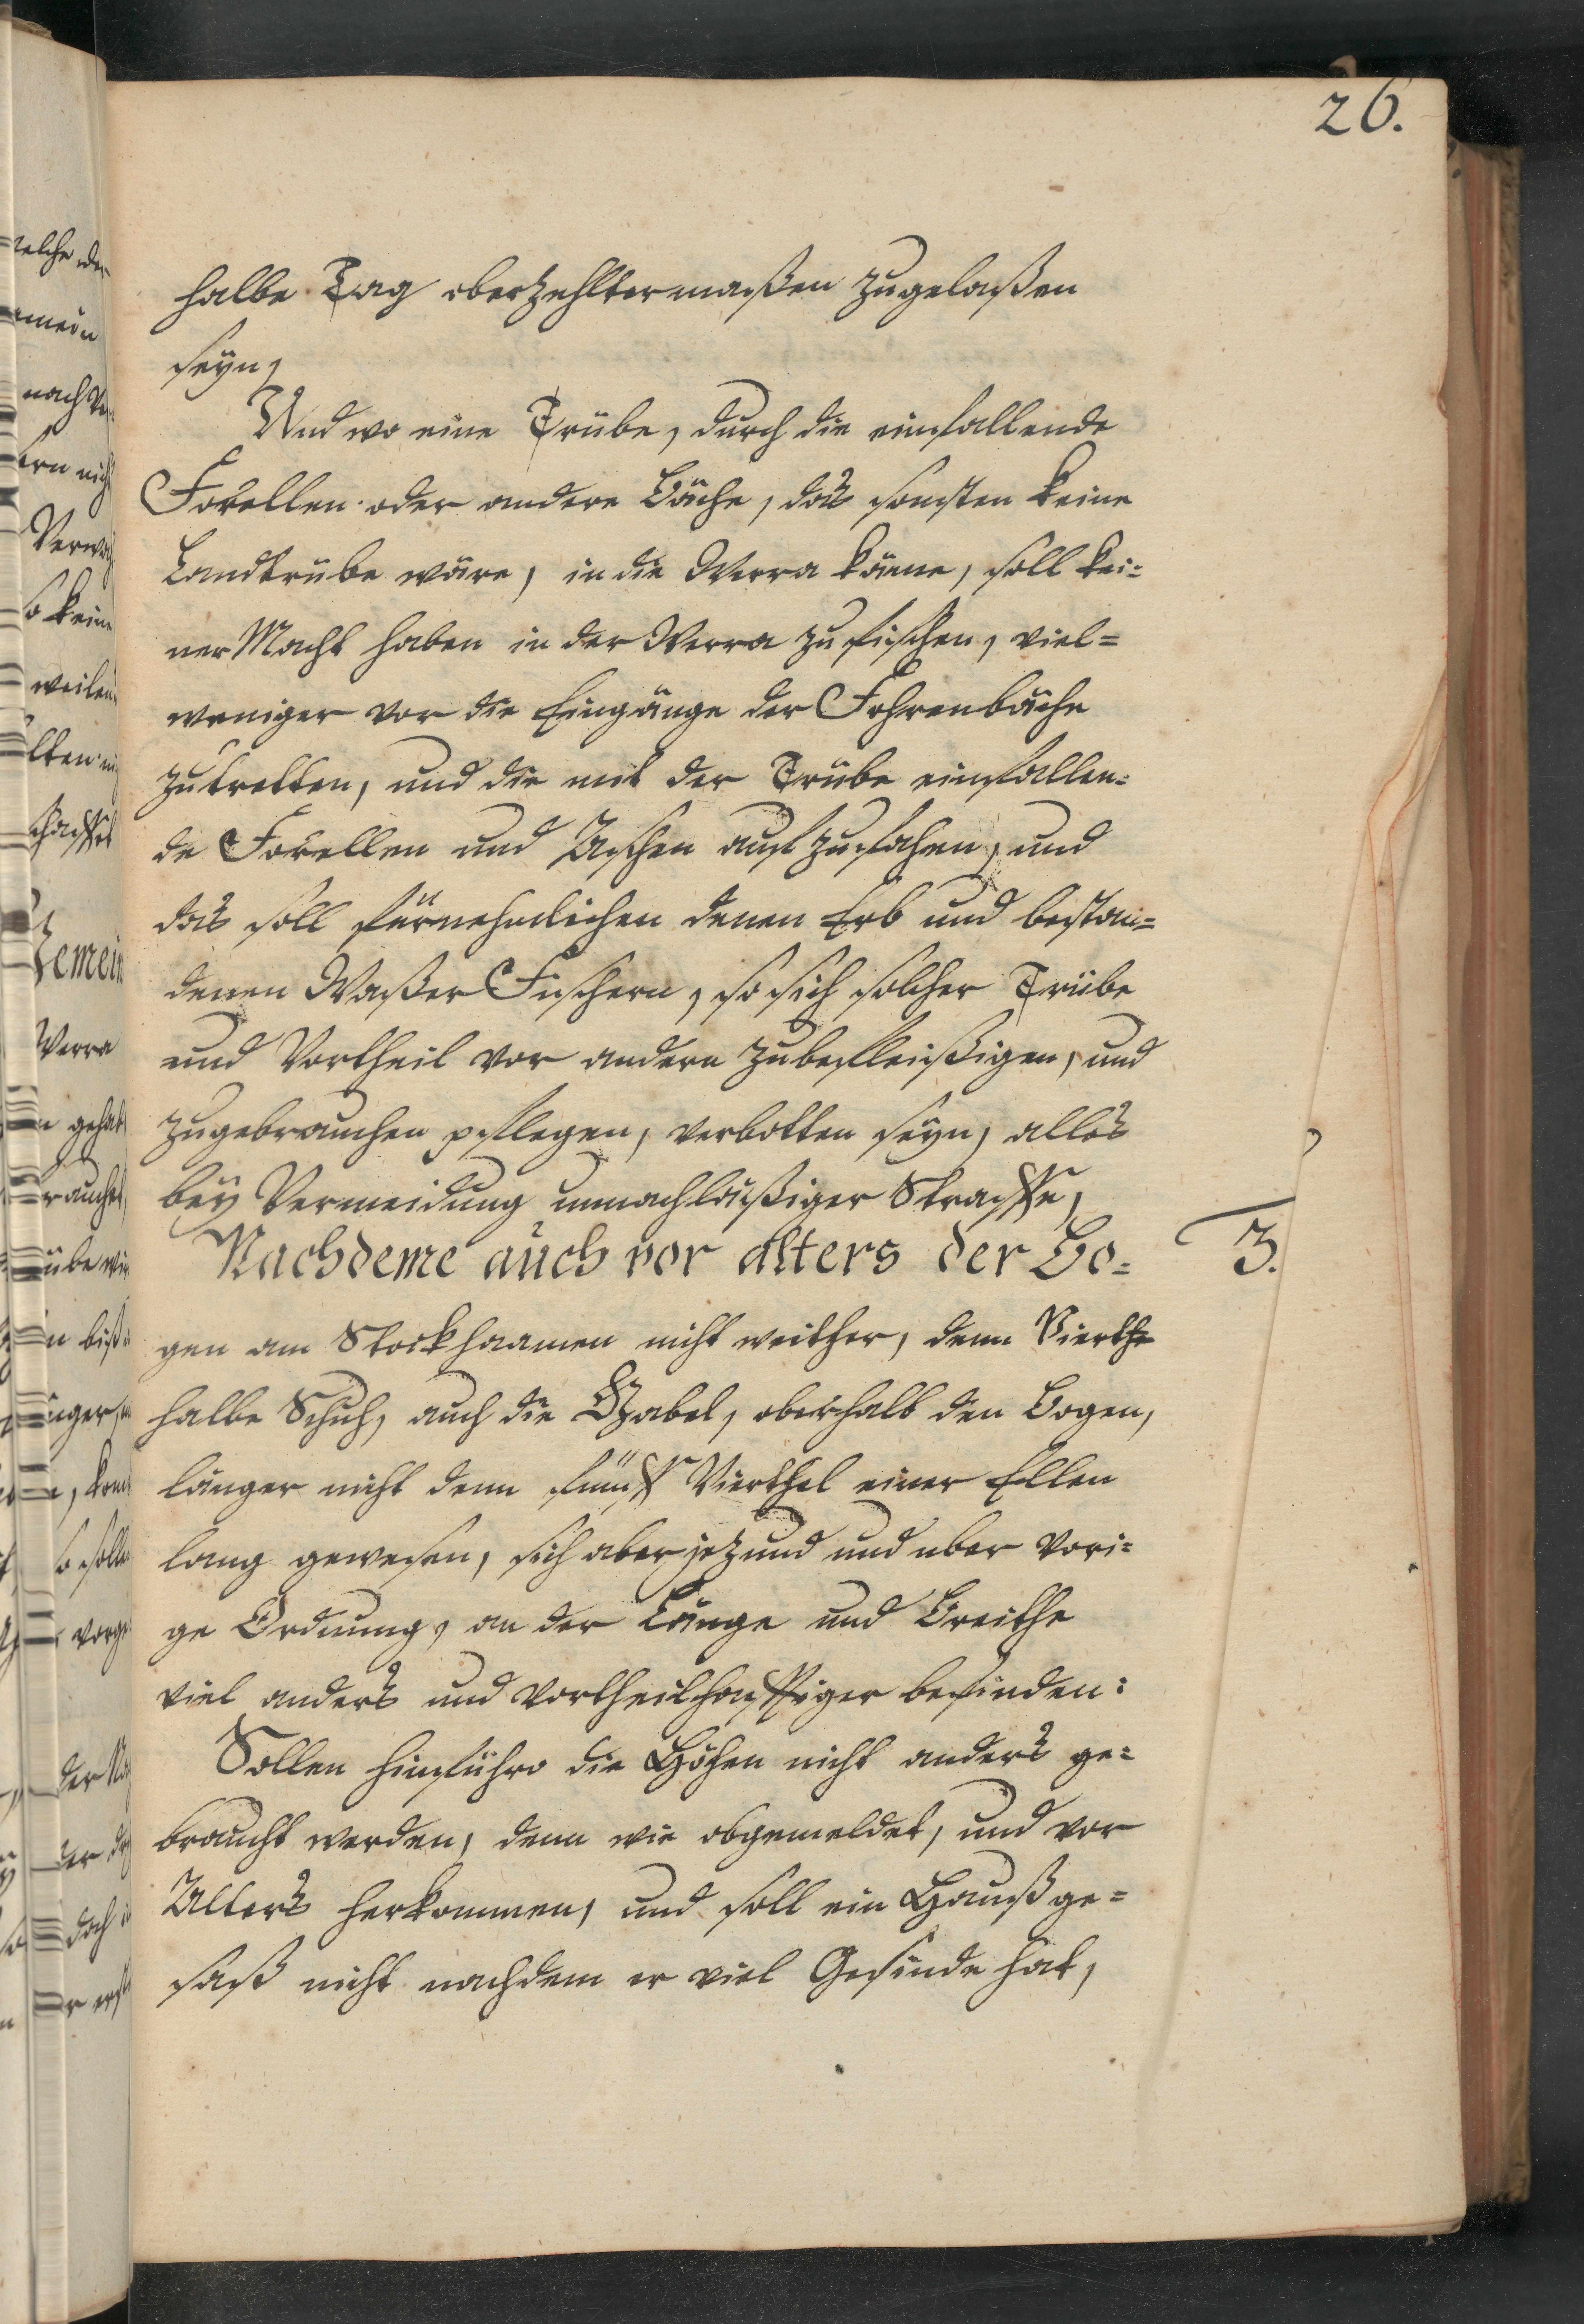 26.
halbe Tag oberzehltermaßen zugelaßen
seyn,
Und wo eine Trübe, durch die einfallende
Forellen oder andere Bäche, das sonsten keine
Landtrübe wäre, in die Werra käme, soll kei=
ner Macht haben in der Werra zu fischen, viel=
weniger vor die Eingänge der Fohrenbäche
zutretten, und die mit der Trübe einfallen=
de Forellen und Aschen auf zufahen, und
das soll fürnehmlichen denen Erb und bestan=
denen Waßer Fischern, so sich solcher Trübe
und Vortheil vor andern zubefleißigen, und
zugebrauchen pflegen, verbotten seyn, alles
bey Vermeidung unnachläußiger Straffe,
Nachdeme auch vor alters der Bo=
3.
gen am Stockhaamen nicht weither, denn Vierthe
halbe Schuh, auch die Gabel, oberhalb den Bogen,
länger nicht denn fünff Vierthel einer Ellen
lang gewesen, sich aber jezund und uber vori=
ge Ordnung, an der Länge und Breithe
viel anders und vortheilhafftiger befinden:
Sollen hinführo die Höhen nicht anders ge=
braucht werden, denn wie obgemeldet, und vor
Alters herkommen, und soll ein Haußge=
saß nicht nachdem er viel Gesinde hat,